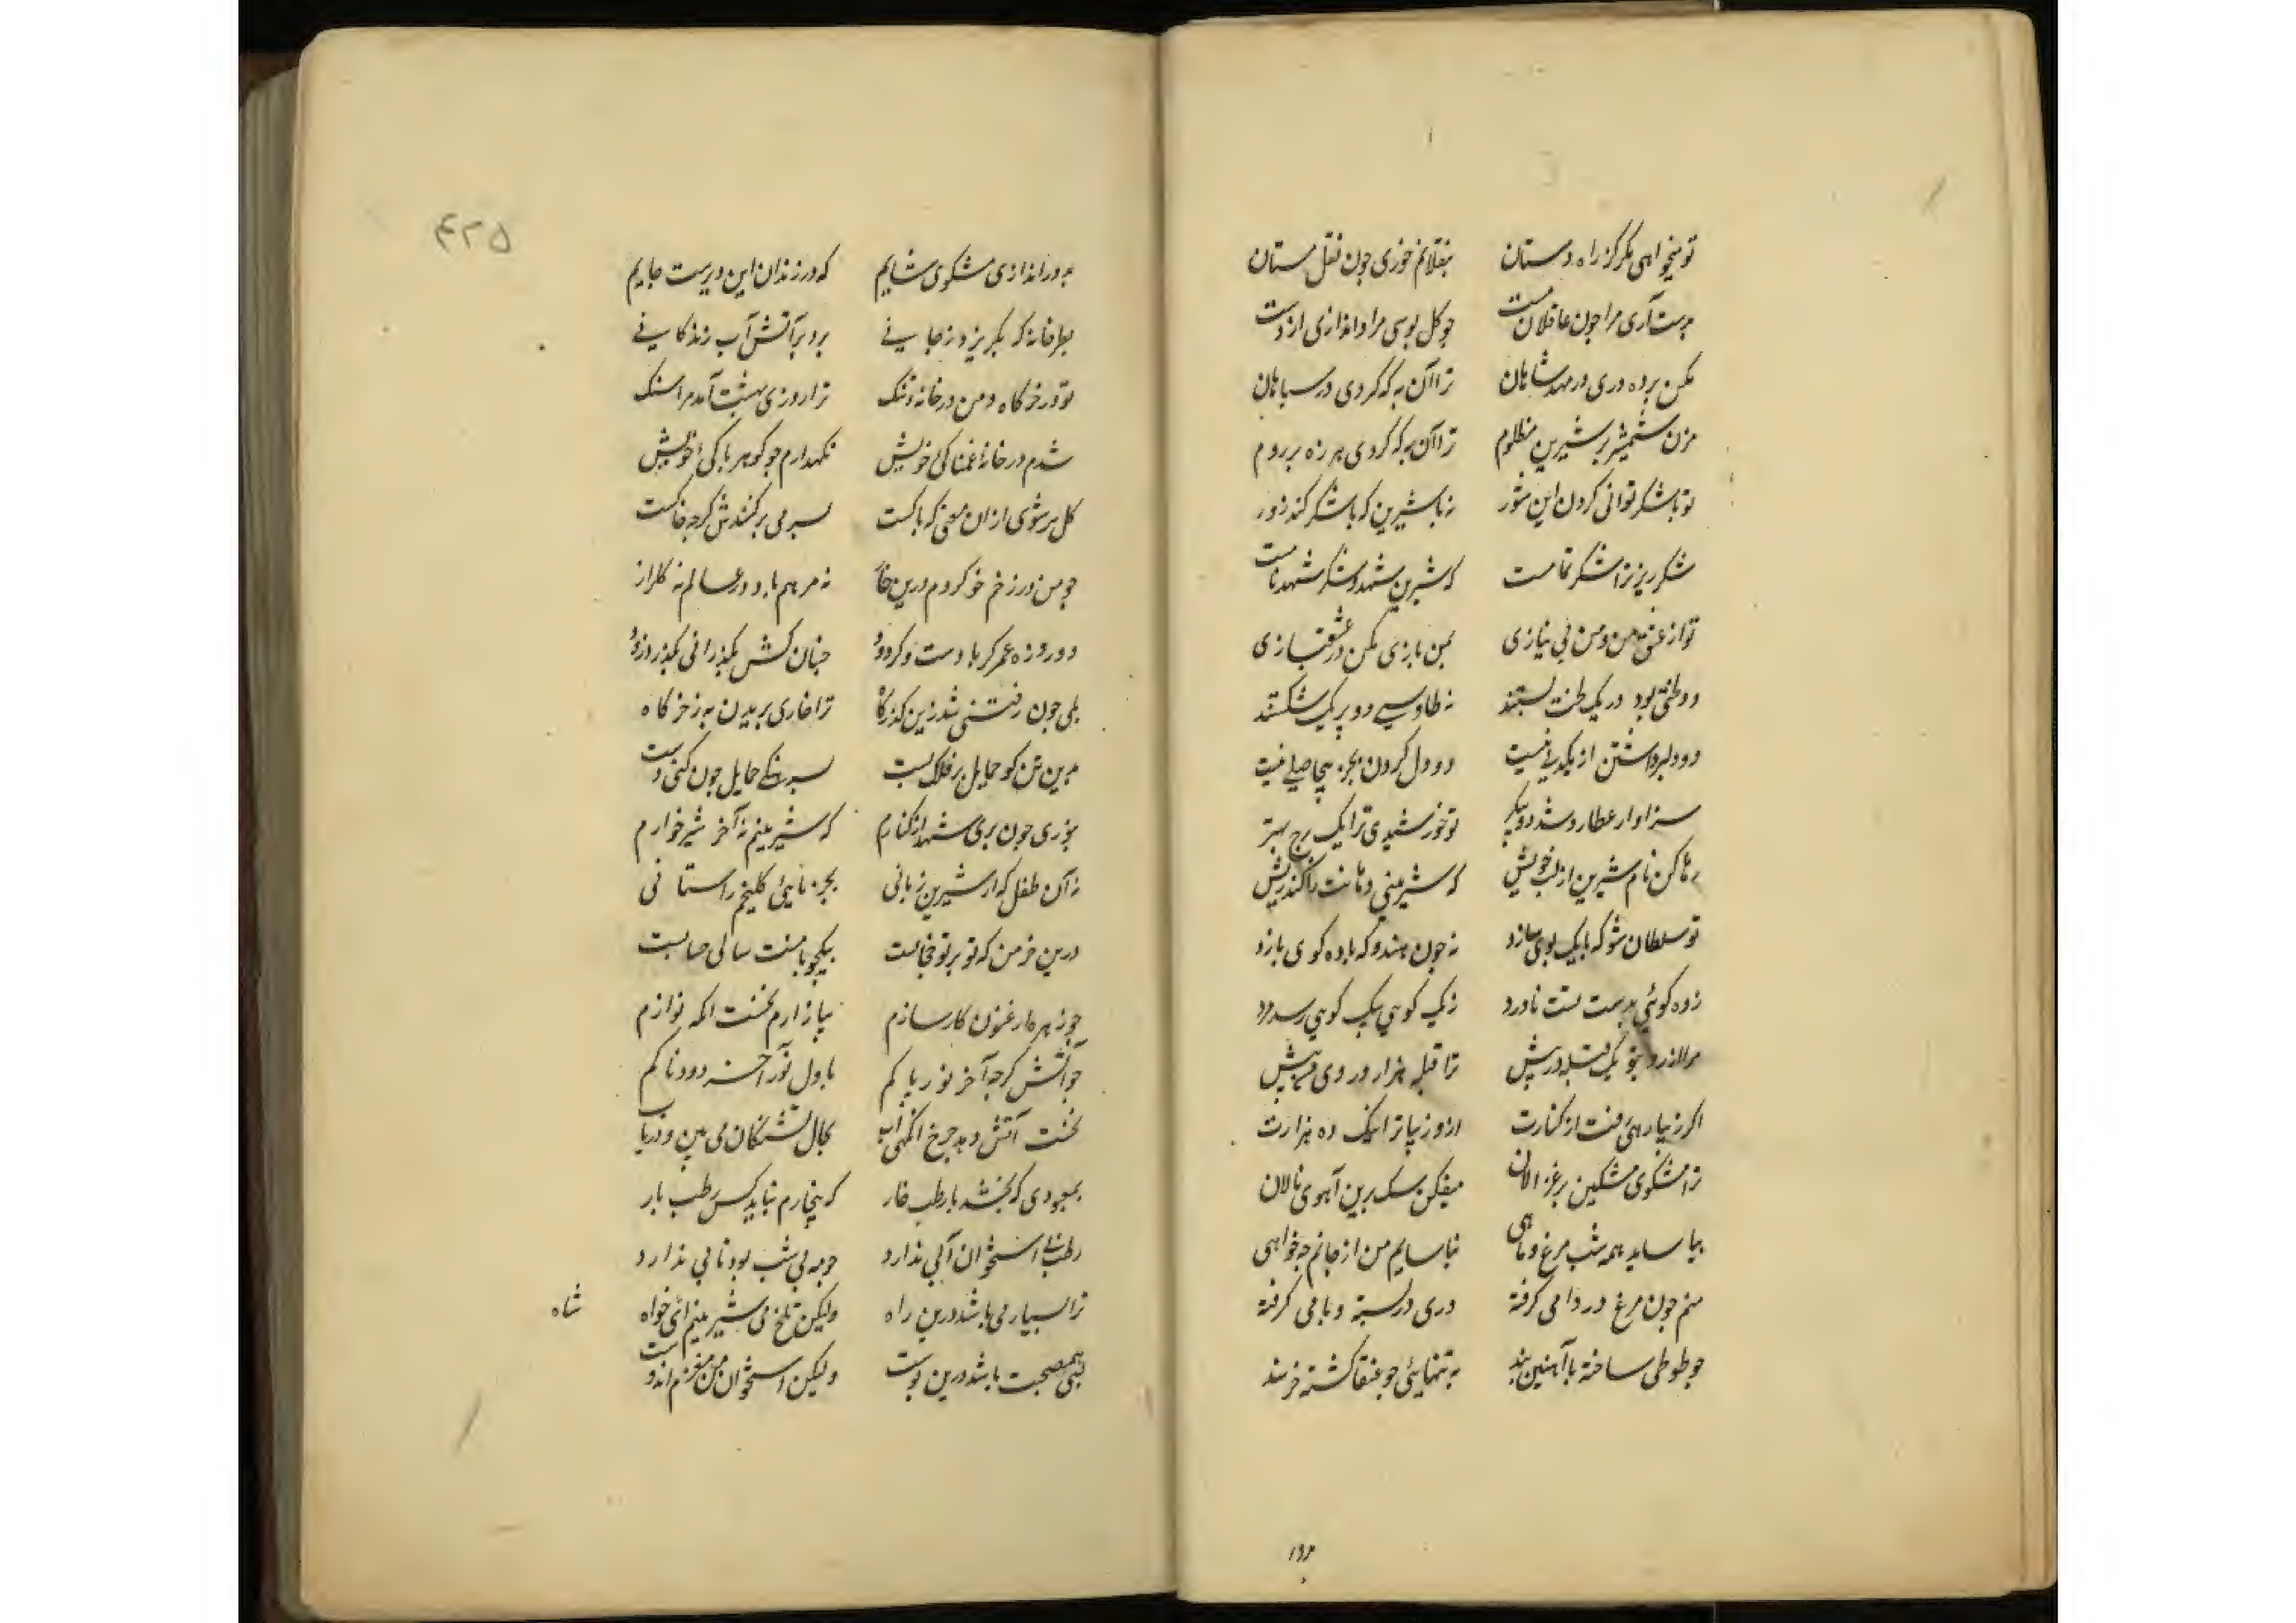 تو میخواهی مکر کز راه دستان بنقلانم خوری چون نقل مستان
بدست آری مرا چون عاقلان مست چو کل بویی مرا و اندازی از دست
مکن پرده دری در مهد شاهان ترا آن به که کردی در سپاهان
مزن شمشیر بر شیرین مظلوم ترا آن به که کردی هرزه بر روم
تو با شکر توانی کردن این شور نه با شیرین که با شکر کند زور
شکرریز ترا شکر تمامست که شیرین شهد و شکر شهد
تو از عشق من و من بی نیازی بمن بازی مکن در عشقبازی
دو لختی بود در یک لخت بستند ز طاوسی دو پر یک شکستند
دو دلبر داشتن از یکدلی نیست دو دل کردن بجز بیحاصلی نیست
سزاوار عطارد شد دو پیکر تو خورشیدی ترا یک برج بهتر
رها کن نام شیرین از لب خویش که شیرینی دهانت را کند ریش
تو سلطان شو که با یک بوی سازد نه چون هندو که با ده کوی بازد
زده کوئی بدست تست ناورد ز یک کویی بیک کویی رسد مرد
مرا از روی تو یک قبله در پیش ترا قبله هزار از روی من بیش
اکر زیبا رخی رفت از کنارت ازو زیباتر اینک ده هزارت
ترا مشکوی مشکین پر غزالان میفکن سک برین آهوی نالان
بیاساید همه شب مرغ و ماهی نیاسایم من از جانم چه خواهی
منم چون مرغ در دامی کرفته دری در بسته و بامی کرفته
چو طوطی ساخته با آهنین بند به تنهایی چو عنقا کشته خرسند
۴۲۵
به در اندازی مشکوی شایم که در زندان این دیرست جایم
بطرخانه کرد بکریز و ز جایی نی برد بر آتش آب زندکانی
تو در خرکاه و من در خانه تنک ترا روزی بهشت آمد مرا سنک
شدم در خانه غمناکی خویش نکهدارم چو کوهر پاکی خویش
کل سرشوی ازان معنی که پاکست بسر بی برکنندش کرچه خاکست
چو من در زخم خو کردم درین خار نه مرهم باد در عالم نه کلزار
دو روزه عمر کر بادست و کر دود چنان کش بکذرانی بکذرد زود
بلی چون رفتنی شد زین کذرکاه ز خاری بر بریدن به ز خرکاه
برین تن کو حمایل بر فلک بست بسرهنکی حمایل چون کنی دست
بوزی چون بری شهد از کنارم که شیرینم نه آخر شیرخوارم
نه آن طفلم که از شیرین زبانی بخرمایی کلیجم را ستانی
درین خرمن که تو بر تو عتابست بیکجو با منت سالی حسابست
چو زهره ارغنون کار سازم بیازارم نخست انکه نوازم
چو آتش کرچه آخر نور پاکم باول نوبت آخر دودناکم
نخست آتش دهد چرخ انکهی آب بحال تشنکان می بین و دریاب
بمعبودی که بخشد با رطب خار که بیخارم نیابد کس رطب بار
رطب بی استخوان آبی ندارد چو مه بی شب بود تابی ندارد
ترا بسیار می باشد درین راه ولیکن تلخ من شیرینم ای شاه
بسی همصحبت باشد درین پوست ولیکن استخوان من مغزم اندوست
شاه